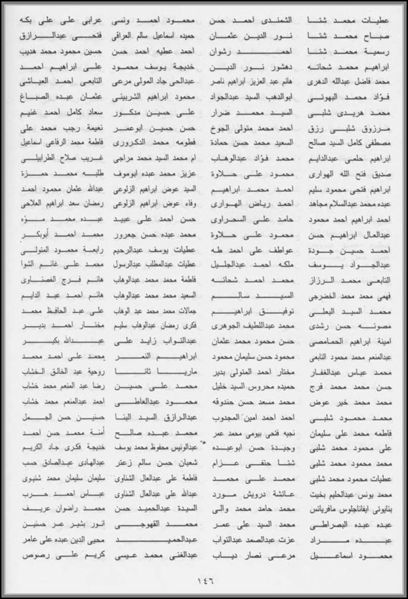 عرابى على على بكه محمود احمد ونسى الشمندى احمد حسن عطيات محمد شتا
فتحى عبدالرازق حميده اسماعيل سالم العراقى نور الدين عثمان صباح محمد شتا
حسين محمود محمد هديب احمد عطيه احمد حسن احمد رشوان رسمية محمد شتا
على ابراهيم احمد خديجة يوسف محمود دهشور نور الدين ابراهيم محمد شحاته
التابعى احمد العياشى عبدالحى جاد المولى مرعى هانم عبد العزيز ابراهيم ناصر محمد فاضل عبدالله الدهرى
عثمان عبده الصباغ محمود ابراهيم الشربينى ابوالدهب السيد عبدالجواد فؤاد محمد البهوتى
سعاد كامل احمد غنيم على حسين مدكور السيد محمد ضرار محمد هريدى شلبى
نعيمة رجب محمد على حسن حسين ابوعمر احمد محمد متولى الجوخ مرزوق شلبى رزق
فاطمة محمد الرفاعى اسماعيل فطومه محمد الدكرورى السعيد محمد حسن حمادة مصطفى كامل السيد صالح
غريب صلاح الطرابيلى ام محمد السيد محمد مراجى محمد فؤاد عبدالوهاب ابراهيم حلمى عبدالدايم
طلبه محمد حمزة عزيز محمد عبده محمود على حلاوة صديق فتح الله الهوارى
عبدالله عثمان محمود احمد السيد عوض ابراهيم الزلوعى احمد محمد ابراهيم ابراهيم فتحى محمود سليم
رمضان سعد ابراهيم العلاجى وفاء عوض ابراهيم الزلوعى احمد رياض الهوارى عبده محمد عبدالسلام مجاهد
عبده محمد حسن احمد على عبيد حامد على السحراوى احمد ابراهيم احمد محمود
محمد احمد ابوبكر محمد عبده حسن جعرور محمود على حلاوة عبدالعال ابراهيم حسن
رابعة محمود المتولى عطيات يوسف عبدالرحيم عواطف على احمد طه احمد حسين جودة
محمد على غانم الشوا عطيات عبدالمطلب عبدالرسول ملكه احمد عبدالجليل عبدالجواد يوسف
هانم فرج الصناوى فاطمة محمد محمد عبدالوهاب احمد محمد شحاته التابعى محمد الرزاز
هانم احمد عبد الدايم السعيد محمد محمد عبدالوهاب السيد سالم فهمى محمد محمد الخضرجى
على عبد الحافظ محمد جمالات محمد محمد عبد الوهاب توفيق ابراهيم محمد السيد البعلى
مختار احمد بدير فكرى رمضان عبدالوهاب سليم محمد عبداللطيف الجوهرى مصونه حسن رشدى
عبدالله بكير عبدالتواب زايد على حسن محمود محمد عثمان امينة ابراهيم الحمامصى
محمد على احمد محمد ابراهيم النمر محمود حسن سليمان محمود عبدالمنعم محمد محمود التابعى
روحية عبد الخالق الخشاب ماريا تاتا مختار احمد المتولى بدير محمد عباس عبدالغفار
رضا عبد المنعم محمد خشاب محمد على حسين حميده محروس السيد خليل حسن محمد محمد فرج
احمد عبدالمنعم محمد خشاب محمود عبدالعاطى محمد مسعد حسن حندوقه محمد محمد خير عوض
حسنين حسن الجمل عبدالرازق السيد البنا احمد احمد امين المجدوب محمد محمود شلبى
آمنة محمد حسن احمد محمد عبده صالح نجيه فتحى بيومى محمد عمر فاطمه محمد على سليمان
خديجة فكرى جاد الكريم عبدالونيس محفوظ محمد يوسف وحيدة حسن ابوعبده على محمود محمد شلبى
عبدالهادى عبدالصادق حسب شعبان حسن سالم زعتر شتا حنفى عزام محمد محمود محمد شلبى
سليمان سليمان محمد شنيوى فاطمة على عبدالعال الشناوى محمد على محمد عطيات محمود محمد شلبى
عباس احمد حرب عبدالله على عبدالعال الشناوى عائشة درويش مورد محمد يونس عبدالحليم بخيت
محمد رضوان عريف السيدة عبدالحميد حسن محمد حامد محمد والى بنايوتى ايفاناجلوس مافريانس
انور بشير عمر حسنين محمد القهوجى محمد السيد على عمر عبده عبده البصراطى
محيى الدين عبده على عامر عبدالحميد عزت عبدالصمد عبدالتواب عبده مراد
كريم على رصوص عبدالغنى محمد عيسى مرعى نصار دياب محمود اسماعيل
١٤٦